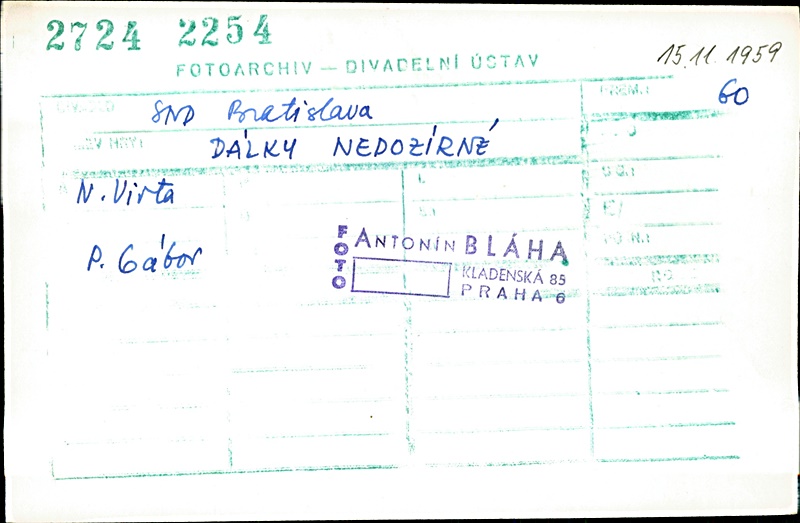 2724 2254
15.11.1959
FOTOARCHIV — DIVADELNÍ ÚSTAV
DIVADLO SND Bratislava
PREM.: 60
NÁZEV HRY: DÁLKY NEDOZÍRNÉ
N. Virta
P. Gábor
FOTO ANTONÍN BLÁHA
KLADENSKÁ 85
PRAHA 6